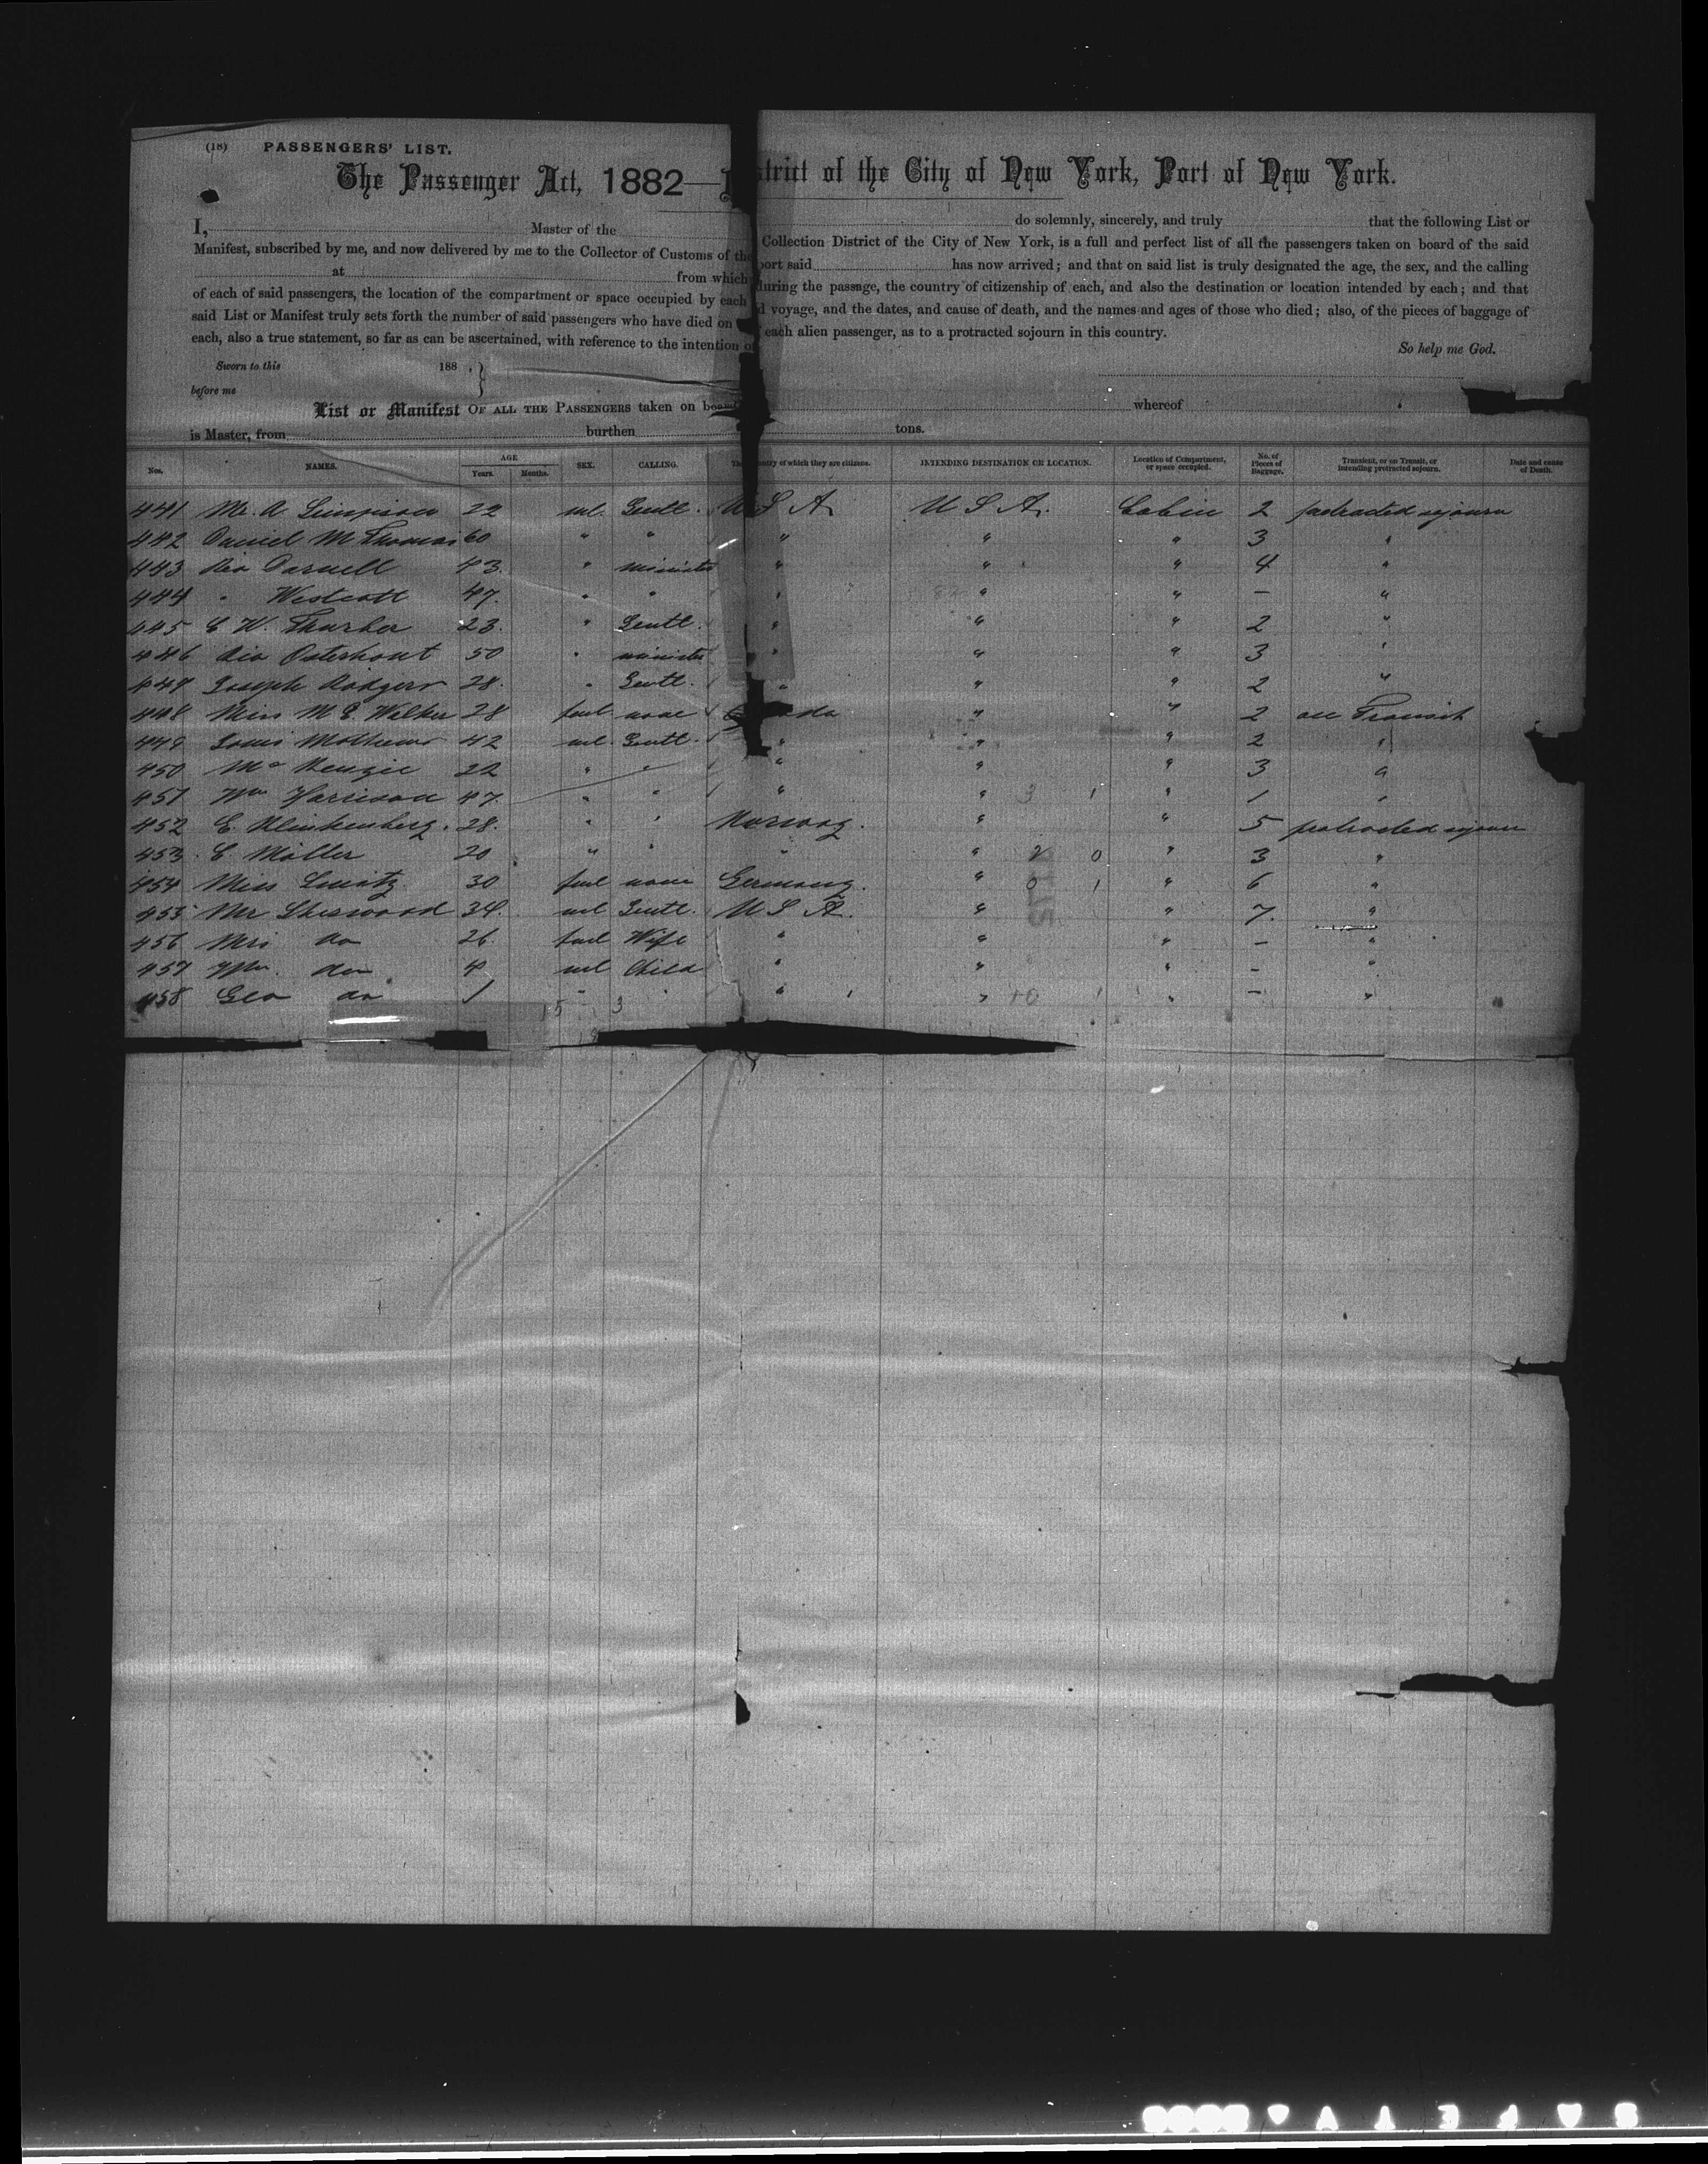 (18) PASSENGERS' LIST.
The Passenger Act, 1882— strict of the City of New York, Port of New York.
I, Master of the do solemnly, sincerely, and truly that the following List or
Manifest, subscribed by me, and now delivered by me to the Collector of Customs of the Collection District of the City of New York, is a full and perfect list of all the passengers taken on board of the said
at from which port said has now arrived; and that on said list is truly designated the age, the sex, and the calling
of each of said passengers, the location of the compartment or space occupied by each during the passage, the country of citizenship of each, and also the destination or location intended by each; and that
said List or Manifest truly sets forth the number of said passengers who have died on d voyage, and the dates, and cause of death, and the names and ages of those who died; also, of the pieces of baggage of
each, also a true statement, so far as can be ascertained, with reference to the intention of each alien passenger, as to a protracted sojourn in this country.
So help me God.
Sworn to this 188 ,
before me
List or Manifest OF ALL THE PASSENGERS taken on board whereof
is Master, from burthen tons.
Nos. NAMES. AGE Years. Months. SEX. CALLING. The country of which they are citizens. INTENDING DESTINATION OR LOCATION. Location of Compartment, or space occupied. No. of Pieces of Baggage. Transient, or on Transit, or intending protracted sojourn. Date and cause of Death.
441 Mr. A. Simpson 22 ml. Gentl. U S A. U S A. Cabin 2 protracted sojourn
442 Daniel M Thomas 60 " " " " " 3 "
443 Rev Darnell 43. " minister " " " 4 "
444 " Westcott 47. " " " " " — "
445 E W. Thurber 23. " Gentl. " " " 2 "
446 Rev Osterhout 50 " minister " " " 3 "
447 Joseph Rodgers 28. " Gentl. " " " 2 "
448 Miss M E. Walker 28 feml none Canada " " 2 on Transit
449 Louis Mathews 42 ml. Gentl. " " " 2 "
450 Mc Kenzie 22 " " " " " 3 "
451 Wm Harrison 47. " " " " " 1 "
452 E. Klinkenberg. 28. " " Norway. " " 5 protracted sojourn
453. C. Möller 20 " " " " " 3 "
454 Miss 30 feml none Germany. " " 6 "
455 Mr Sherwood 34. ml Gentl. U S A. " " 7. "
456 Mrs do 26. feml Wife " " " — "
457 Wm. do 4 ml Child " " " — "
458 Geo do 1 " " " " " — "